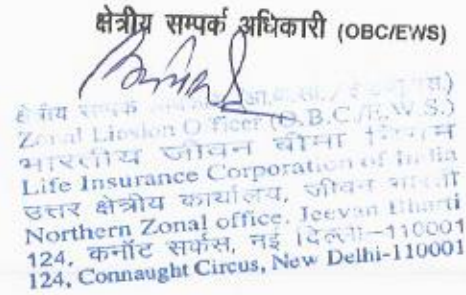 क्षेत्रीय सम्पर्क अधिकारी (OBC/EWS)
क्षेत्रीय सम्पर्क
Zonal Liasion Officer (O.B.C./E.W.S.)
भारतीय जीवन बीमा निगम
Life Insurance Corporation of India
उत्तर क्षेत्रीय कार्यालय, जीवन भारती
Northern Zonal office. Jeevan Bharti
124, कनॉट सर्कस, नई दिल्ली-110001
124, Connaught Circus, New Delhi-110001